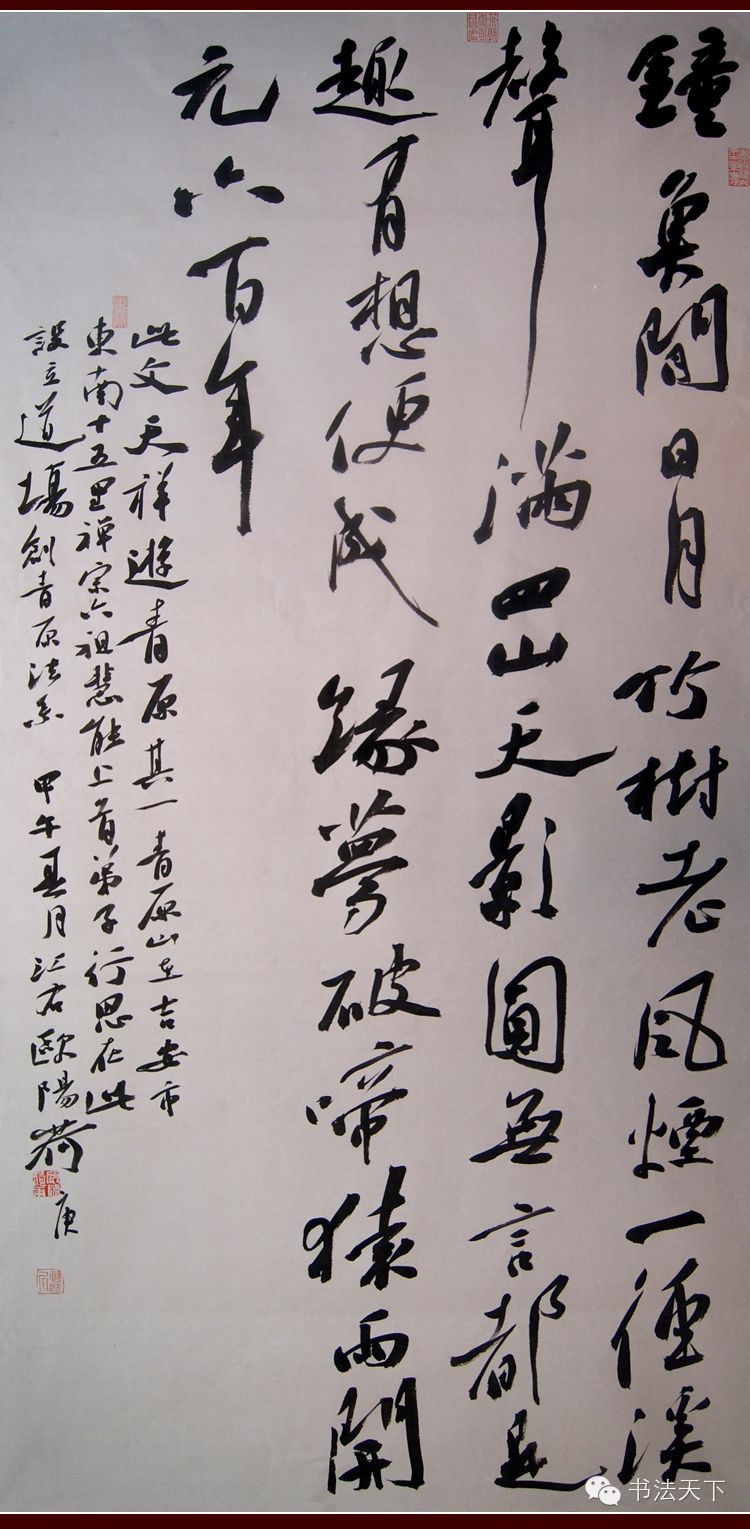 鐘魚閒日月竹樹老風煙一徑溪
聲滿四山天影圓無言都是
趣有想便成緣夢破啼猿雨開
元六百年
此文天祥遊青原其一青原山在吉安市
東南十五里禪宗六祖慧能上首弟子行思在此
設立道場創青原法系 甲午夏月江右歐陽荷庚
书法天下